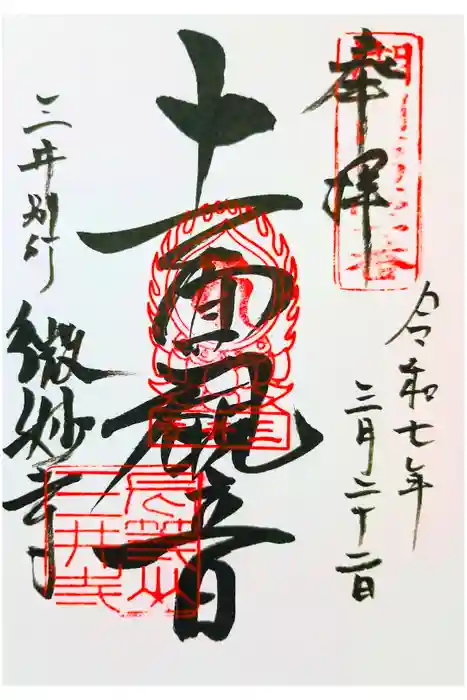 奉拝
令和七年
三月二十二日
十一面観音
三井別所
微妙寺
長等山
三井寺